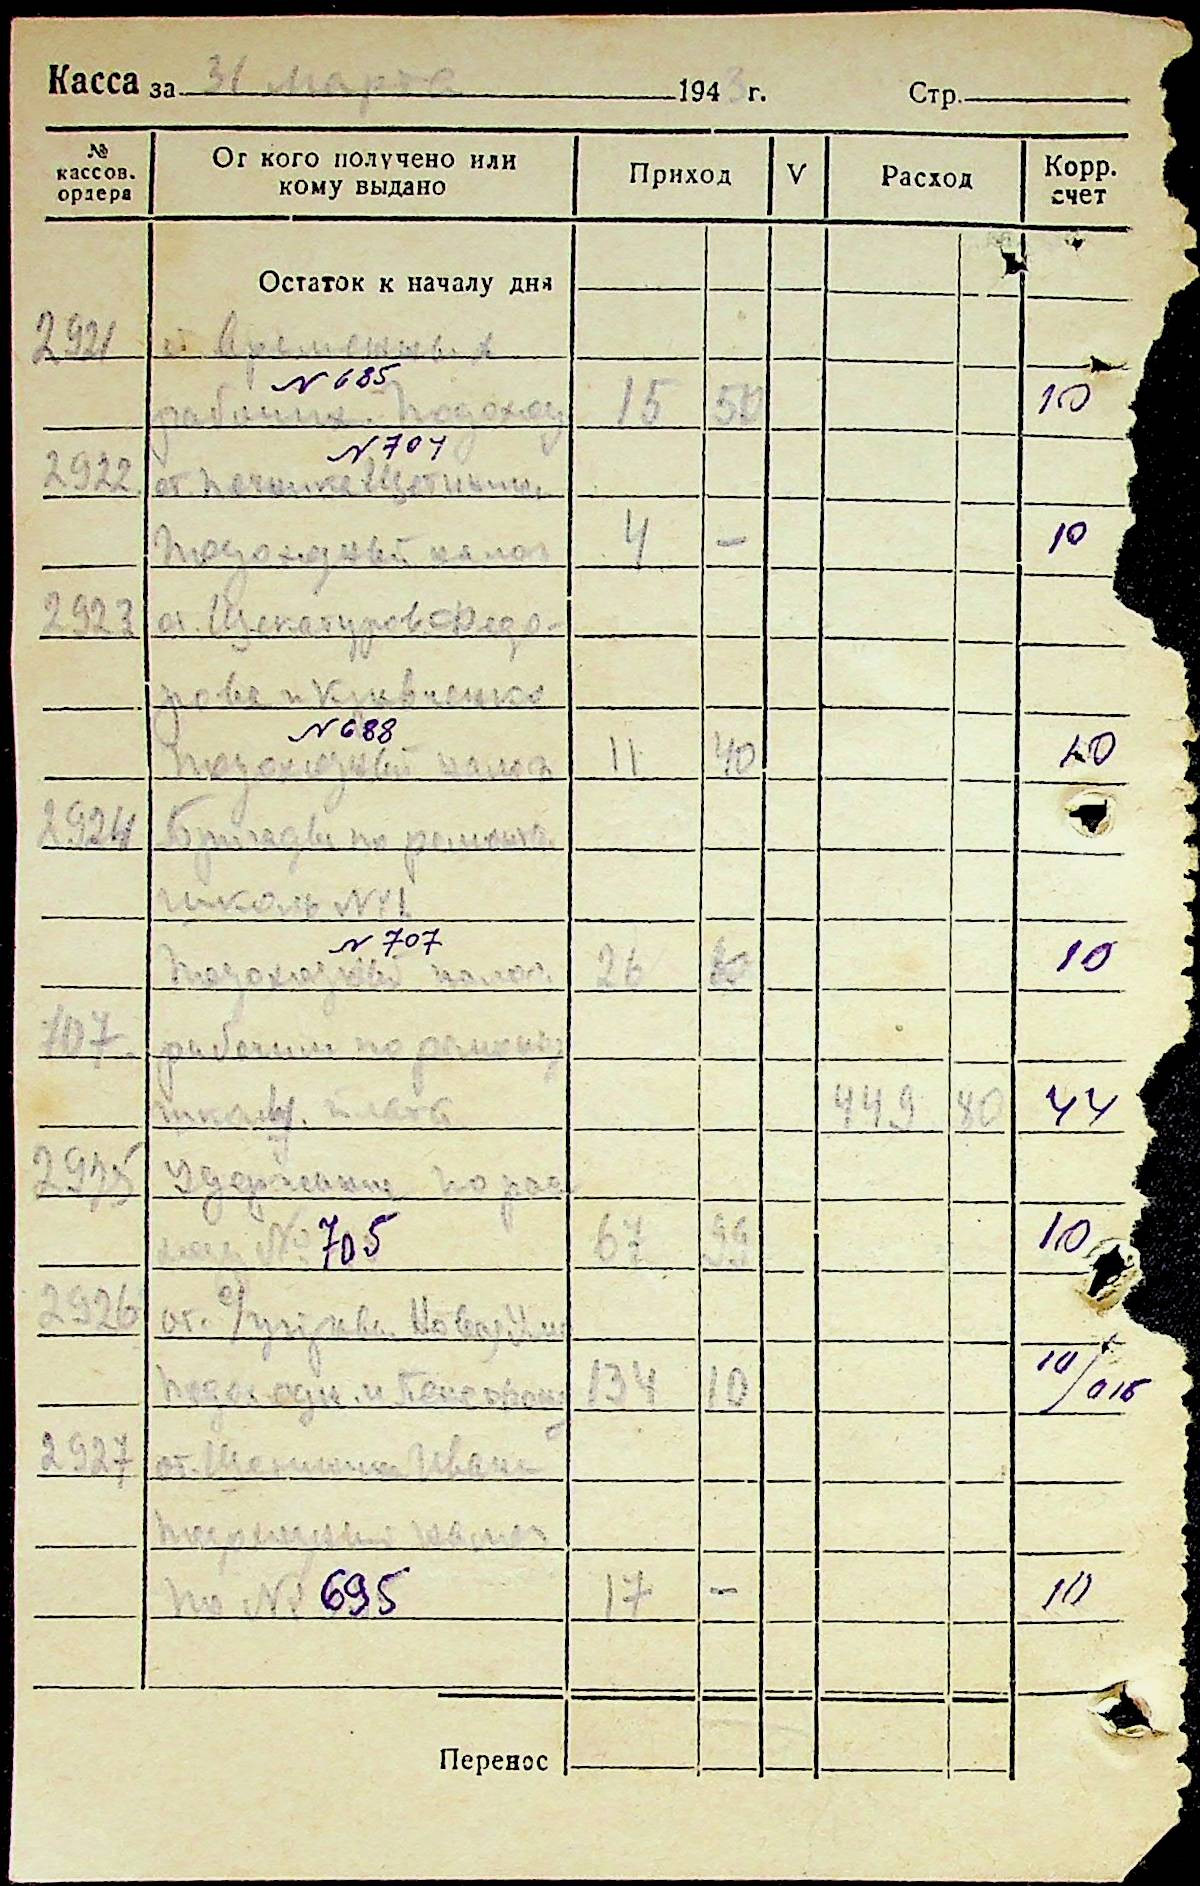 Касса за 31 марта 1943 г. Стр.
№ кассов. ордера От кого получено или кому выдано Приход V Расход Корр. счет
Остаток к началу дня
2921 Временных
N 685
рабочих. Подоход 15 50 10
N 704
2922 от Печника Щетинин
Подоходный налог 4 — 10
2923 от Щекатуров Федо-
рова и Кривченко
N 688
Подоходный налог 11 40 10
2924 Бригады по ремонту
школы N 11
N 707
Подоходный налог 26 80 10
707. рабочим по ремонту
школы. плата 449 80 44
2925 Удержание по рас-
ход № 705 67 99 10
2926 от
Подоходн. и 134 10 10/016
2927 от Иван
налог
по № 695 17 — 10
Перенос